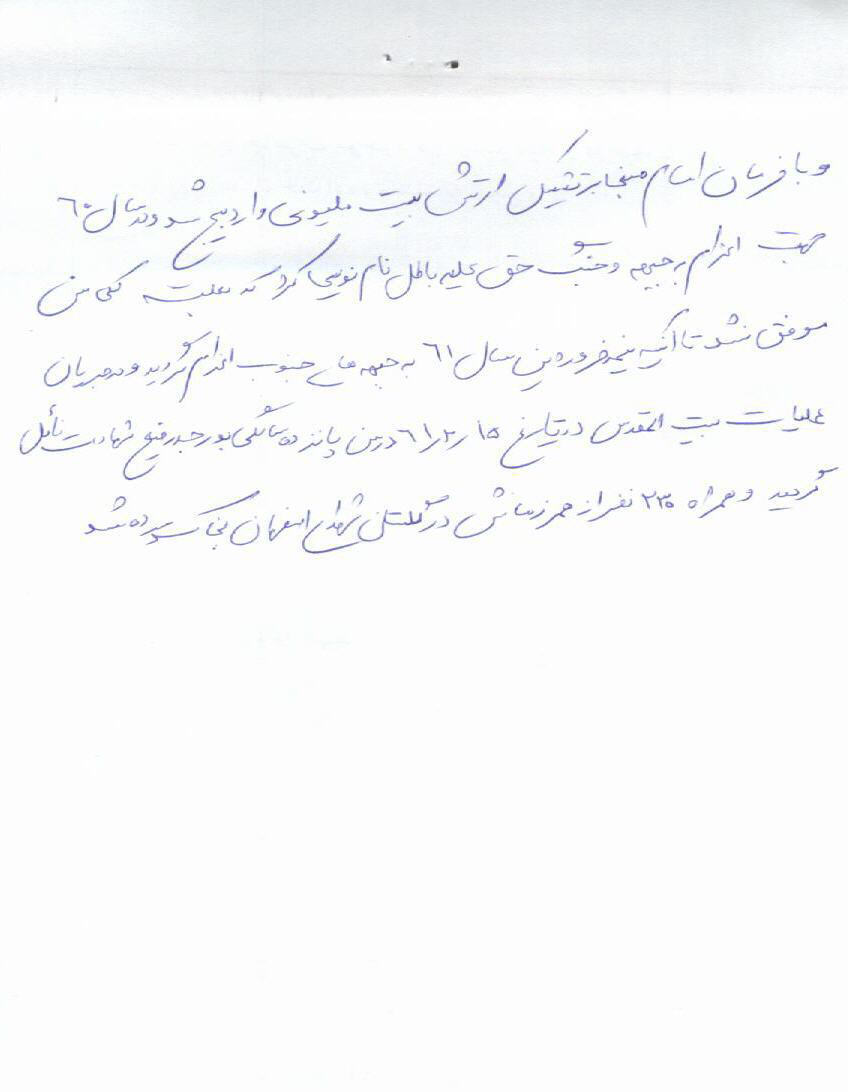 و با فرمان امام مبنی بر تشکیل ارتش بیست ملیونی وارد بسیج شد و در سال ۶۰
جهت اعزام به جبهه و جنگ حق علیه باطل نام نویسی کرد که بعلت کمی سن
موفق نشد تا آنکه نیمه فروردین سال ۶۱ به جبهه های جنوب اعزام گردید و در جریان
عملیات بیت المقدس در تاریخ ۶۱/۲/۱۵ در سن پانزده سالگی بدرجه رفیع شهادت نائل
گردید و همراه ۲۳۰ نفر از همرزمانش در گلستان شهدای اصفهان بخاک سپرده شد